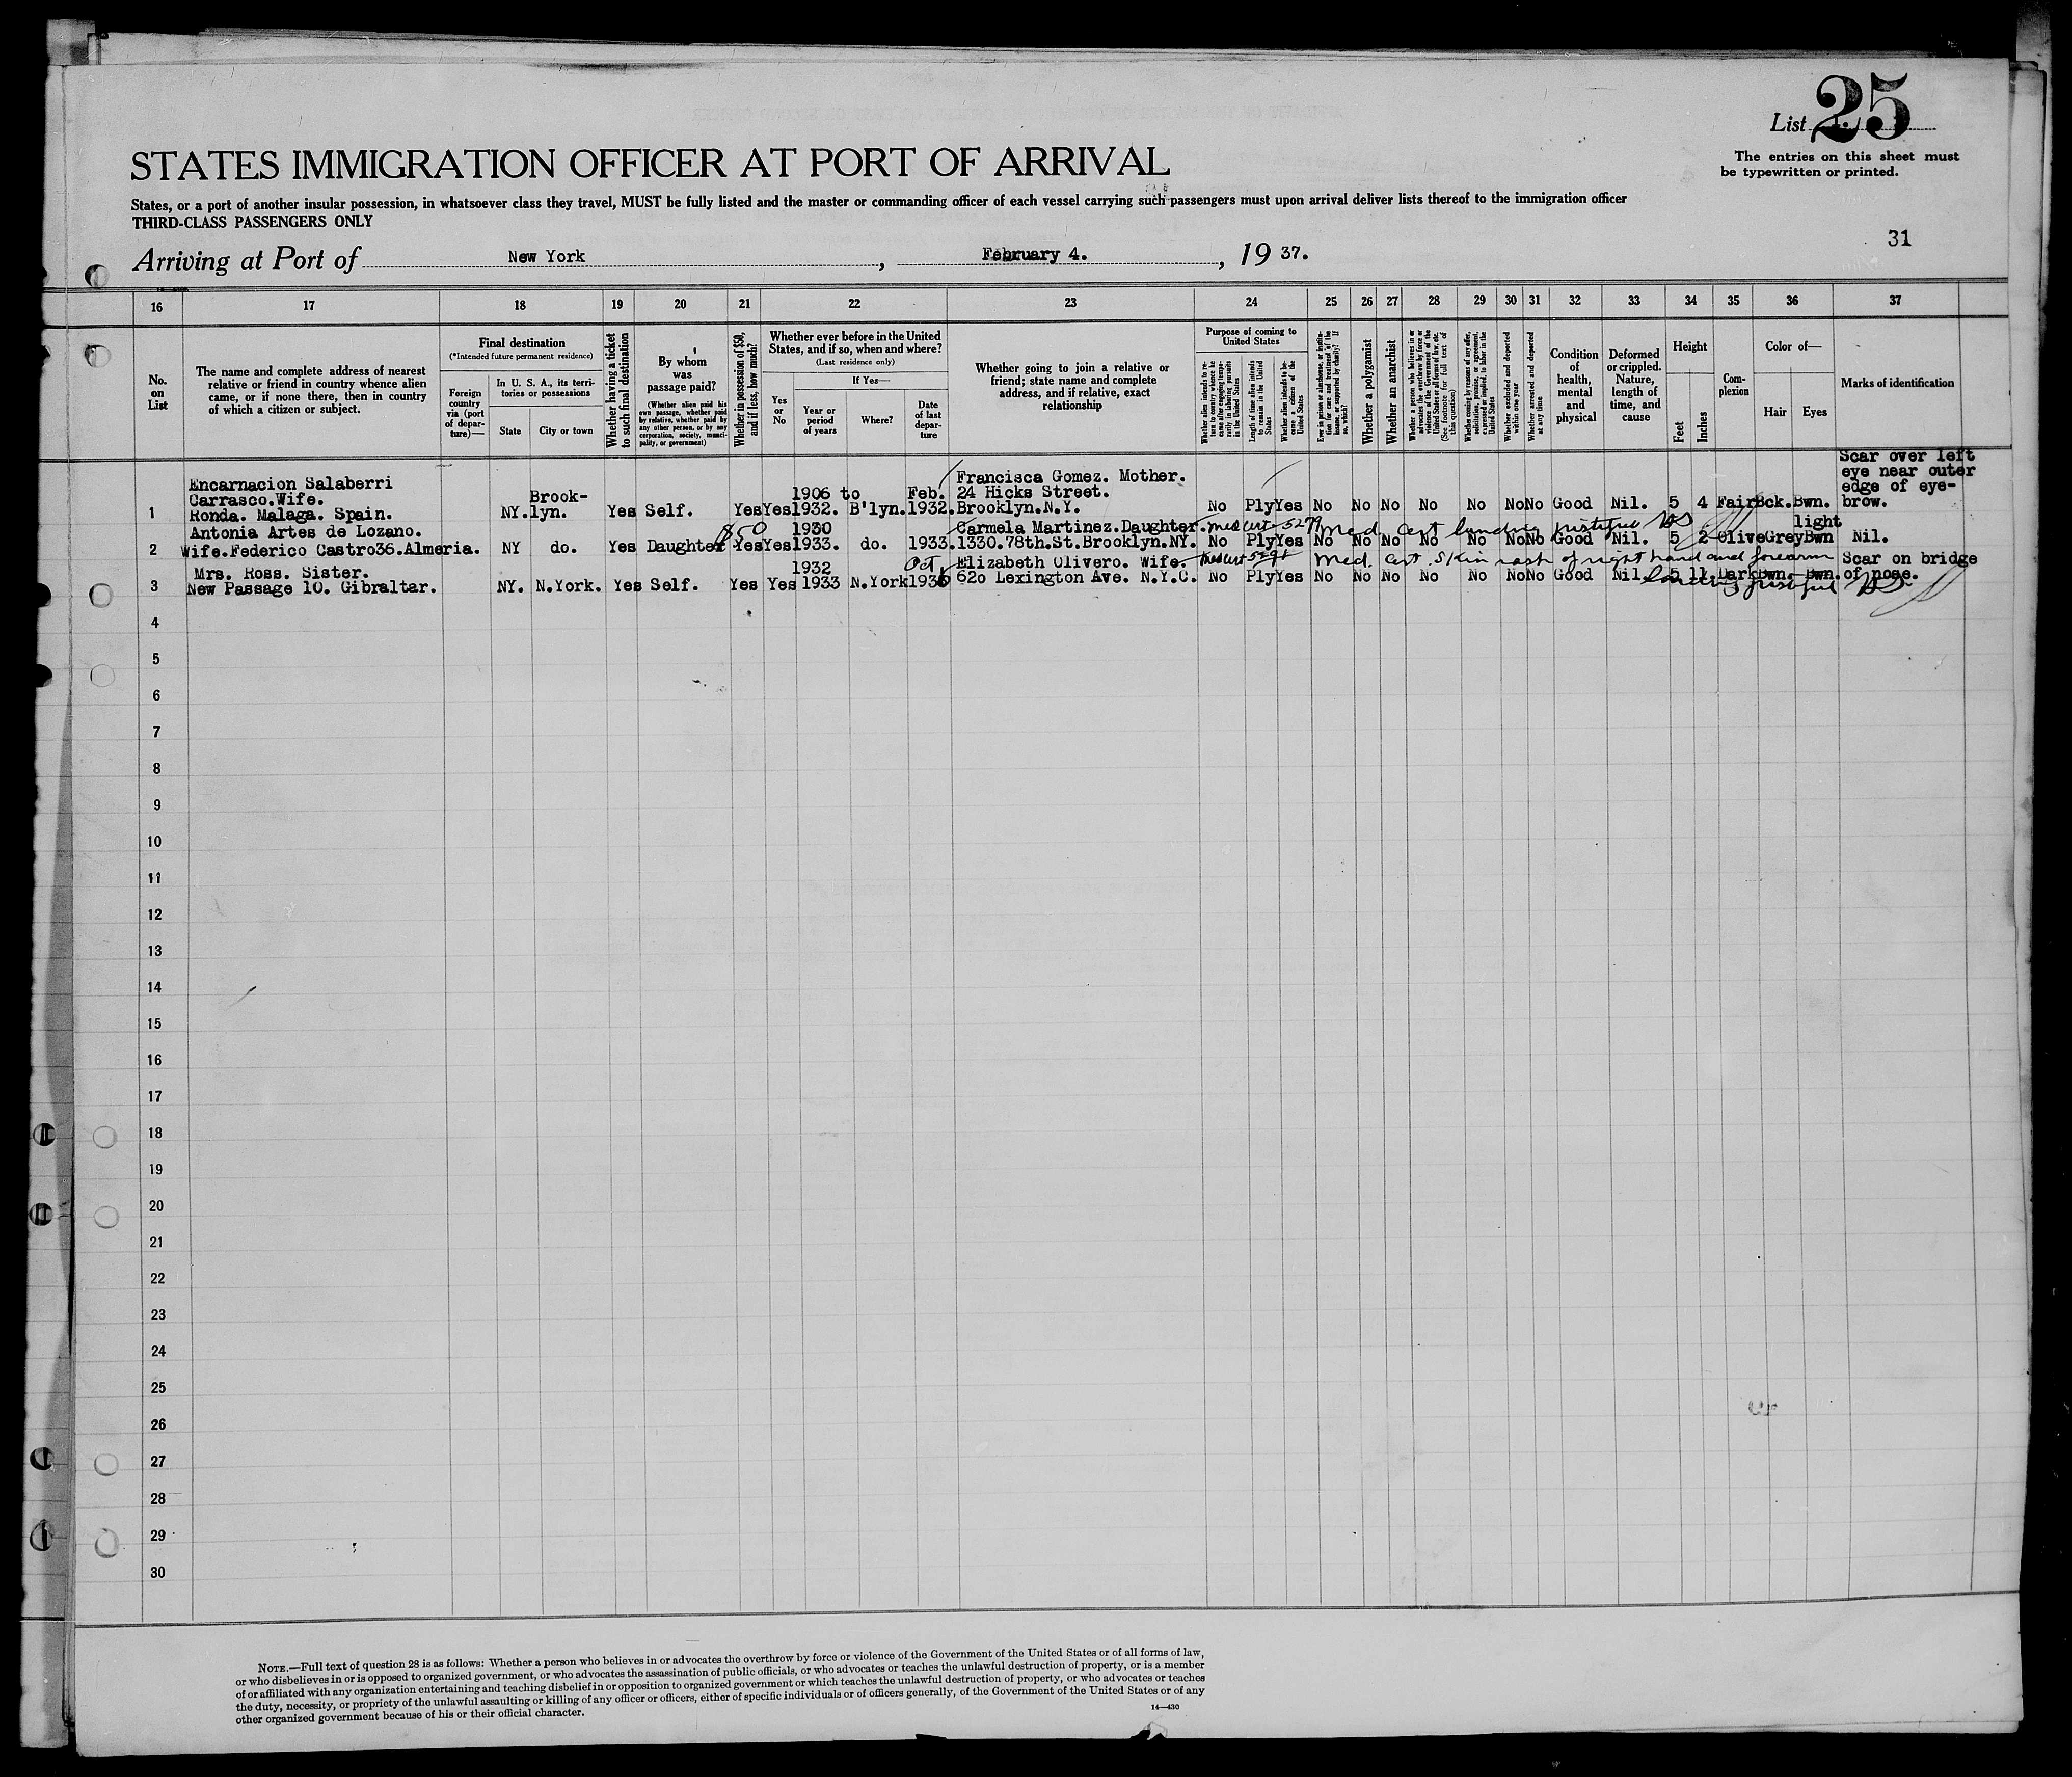 List 25
The entries on this sheet must
be typewritten or printed.
STATES IMMIGRATION OFFICER AT PORT OF ARRIVAL
States, or a port of another insular possession, in whatsoever class they travel, MUST be fully listed and the master or commanding officer of each vessel carrying such passengers must upon arrival deliver lists thereof to the immigration officer
THIRD-CLASS PASSENGERS ONLY
31
Arriving at Port of New York, February 4., 19 37.
16 17 18 19 20 21 22 23 24 25 26 27 28 29 30 31 32 33 34 35 36 37
No. on List
The name and complete address of nearest
relative or friend in country whence alien
came, or if none there, then in country
of which a citizen or subject.
Final destination
(*Intended future permanent residence)
Foreign
country
via (port
of depar-
ture)—
In U. S. A., its terri-
tories or possessions
State
City or town
Whether having a ticket
to such final destination
By whom
was
passage paid?
(Whether alien paid his
own passage, whether paid
by relative, whether paid by
any other person, or by any
corporation, society, munici-
pality, or government)
Whether in possession of $50,
and if less, how much?
Whether ever before in the United
States, and if so, when and where?
(Last residence only)
Yes
or
No
If Yes—
Year or
period
of years
Where?
Date
of last
depar-
ture
Whether going to join a relative or
friend; state name and complete
address, and if relative, exact
relationship
Purpose of coming to
United States
Whether alien intends to re-
turn to country whence he
came after engaging tempo-
rarily in laboring pursuits
in the United States
Length of time alien intends
to remain in the United
States
Whether alien intends to be-
come a citizen of the
United States
Ever in prison or almshouse, or institu-
tion for care and treatment of the
insane, or supported by charity? If
so, which?
Whether a polygamist
Whether an anarchist
Whether a person who believes in or
advocates the overthrow by force or
violence of the Government of the
United States or all forms of law, etc.
(See footnote for full text of
this question)
Whether coming by reasons of any offer,
solicitation, promise, or agreement,
expressed or implied, to labor in the
United States
Whether excluded and deported
within one year
Whether arrested and deported
at any time
Condition
of
health,
mental
and
physical
Deformed
or crippled.
Nature,
length of
time, and
cause
Height
Feet
Inches
Com-
plexion
Color of—
Hair
Eyes
Marks of identification
1
Encarnacion Salaberri
Carrasco.Wife.
Ronda. Malaga. Spain.
NY.
Brook-
lyn.
Yes Self. Yes Yes
1906 to
1932. B'lyn.
Feb.
1932.
Francisca Gomez. Mother.
24 Hicks Street.
Brooklyn.N.Y.
No Ply Yes No No No No No No No Good Nil. 5 4 Fair Bck. Bwn.
Scar over left
eye near outer
edge of eye-
brow.
2
Antonia Artes de Lozano.
Wife.Federico Castro36.Almeria.
NY do. Yes Daughter $50 Yes Yes
1930
1933. do. 1933.
Carmela Martinez.Daughter.
1330.78th.St.Brooklyn.NY.
Med Cert
Med. Cert landing justified
No Ply Yes No No No No No No No Good Nil. 5 2 Olive Grey
light
Bwn
Nil.
3
Mrs. Ross. Sister.
New Passage 10. Gibraltar.
NY. N.York. Yes Self. Yes Yes
1932
1933 N.York
Oct
1936
Elizabeth Olivero. Wife.
620 Lexington Ave. N.Y.C.
Med Cert
Med. Cert. Skin rash of right hand and forearm
landing justified
No Ply Yes No No No No No No No Good Nil. 5 11 Dark Bwn. Bwn.
Scar on bridge
of nose.
4
5
6
7
8
9
10
11
12
13
14
15
16
17
18
19
20
21
22
23
24
25
26
27
28
29
30
NOTE.—Full text of question 28 is as follows: Whether a person who believes in or advocates the overthrow by force or violence of the Government of the United States or of all forms of law,
or who disbelieves in or is opposed to organized government, or who advocates the assassination of public officials, or who advocates or teaches the unlawful destruction of property, or is a member
of or affiliated with any organization entertaining and teaching disbelief in or opposition to organized government or which teaches the unlawful destruction of property, or who advocates or teaches
the duty, necessity, or propriety of the unlawful assaulting or killing of any officer or officers, either of specific individuals or of officers generally, of the Government of the United States or of any
other organized government because of his or their official character.
14—430